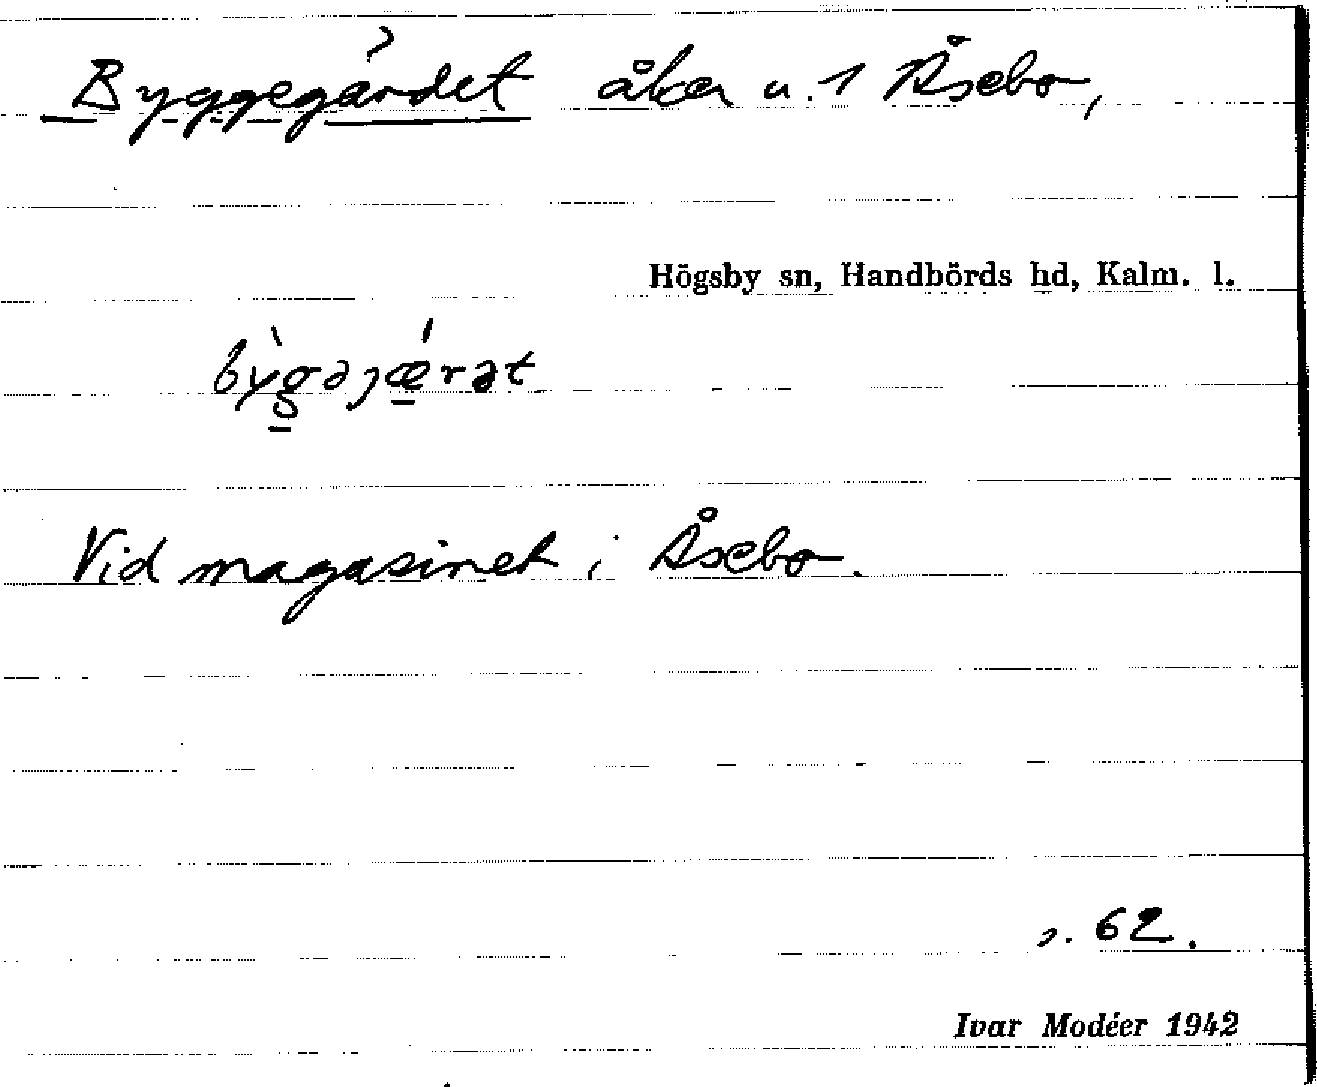 Byggegärdet åker u. 1 Åsebo,
Högsby sn, Handbörds hd, Kalm. l.
bỳgəjǽrət
Vid magasinet i Åsebo.
s. 62.
Ivar Modéer 1942